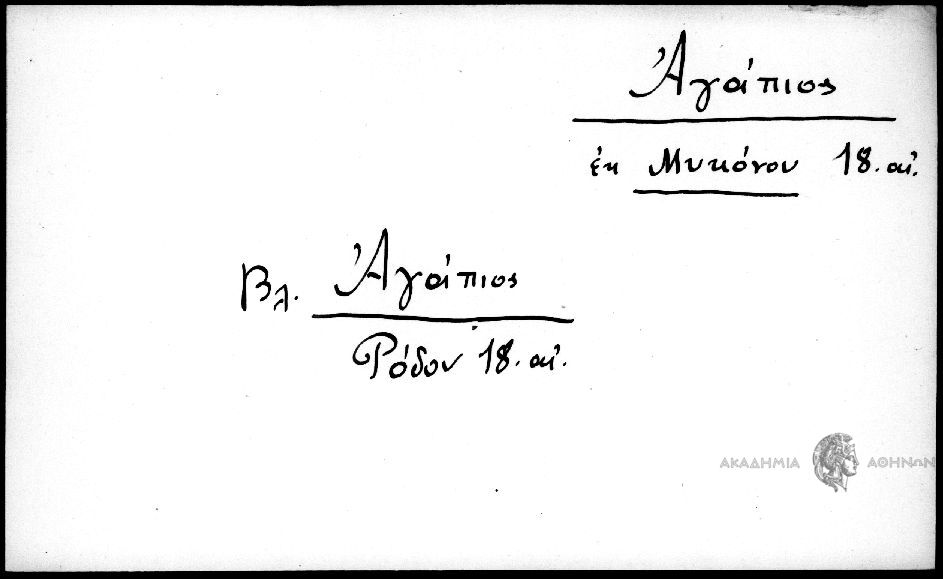 Ἀγάπιος
ἐκ Μυκόνου 18. αἰ.
Βλ. Ἀγάπιος
Ρόδον 18. αἰ.
ΑΚΑΔΗΜΙΑ ΑΘΗΝΩΝ